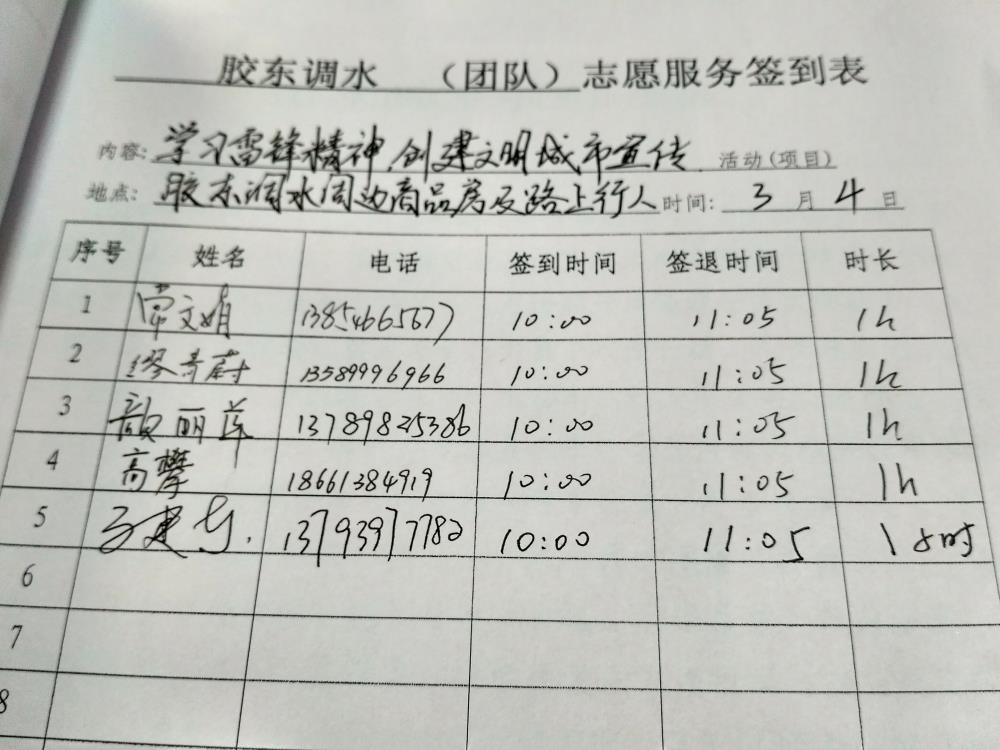 胶东调水 （团队）志愿服务签到表
内容：学习雷锋精神，创建文明城市宣传 活动（项目）
地点：胶东调水周边商品房及路上行人 时间：3月4日
序号 姓名 电话 签到时间 签退时间 时长
1 常文娟 13854665677 10:00 11:05 1h
2 缪青蔚 13589996966 10:00 11:05 1h
3 丽萍 10:00 11:05 1h
4 高攀 18661384919 10:00 11:05 1h
5 建 13793977782 10:00 11:05 1小时
6
7
8